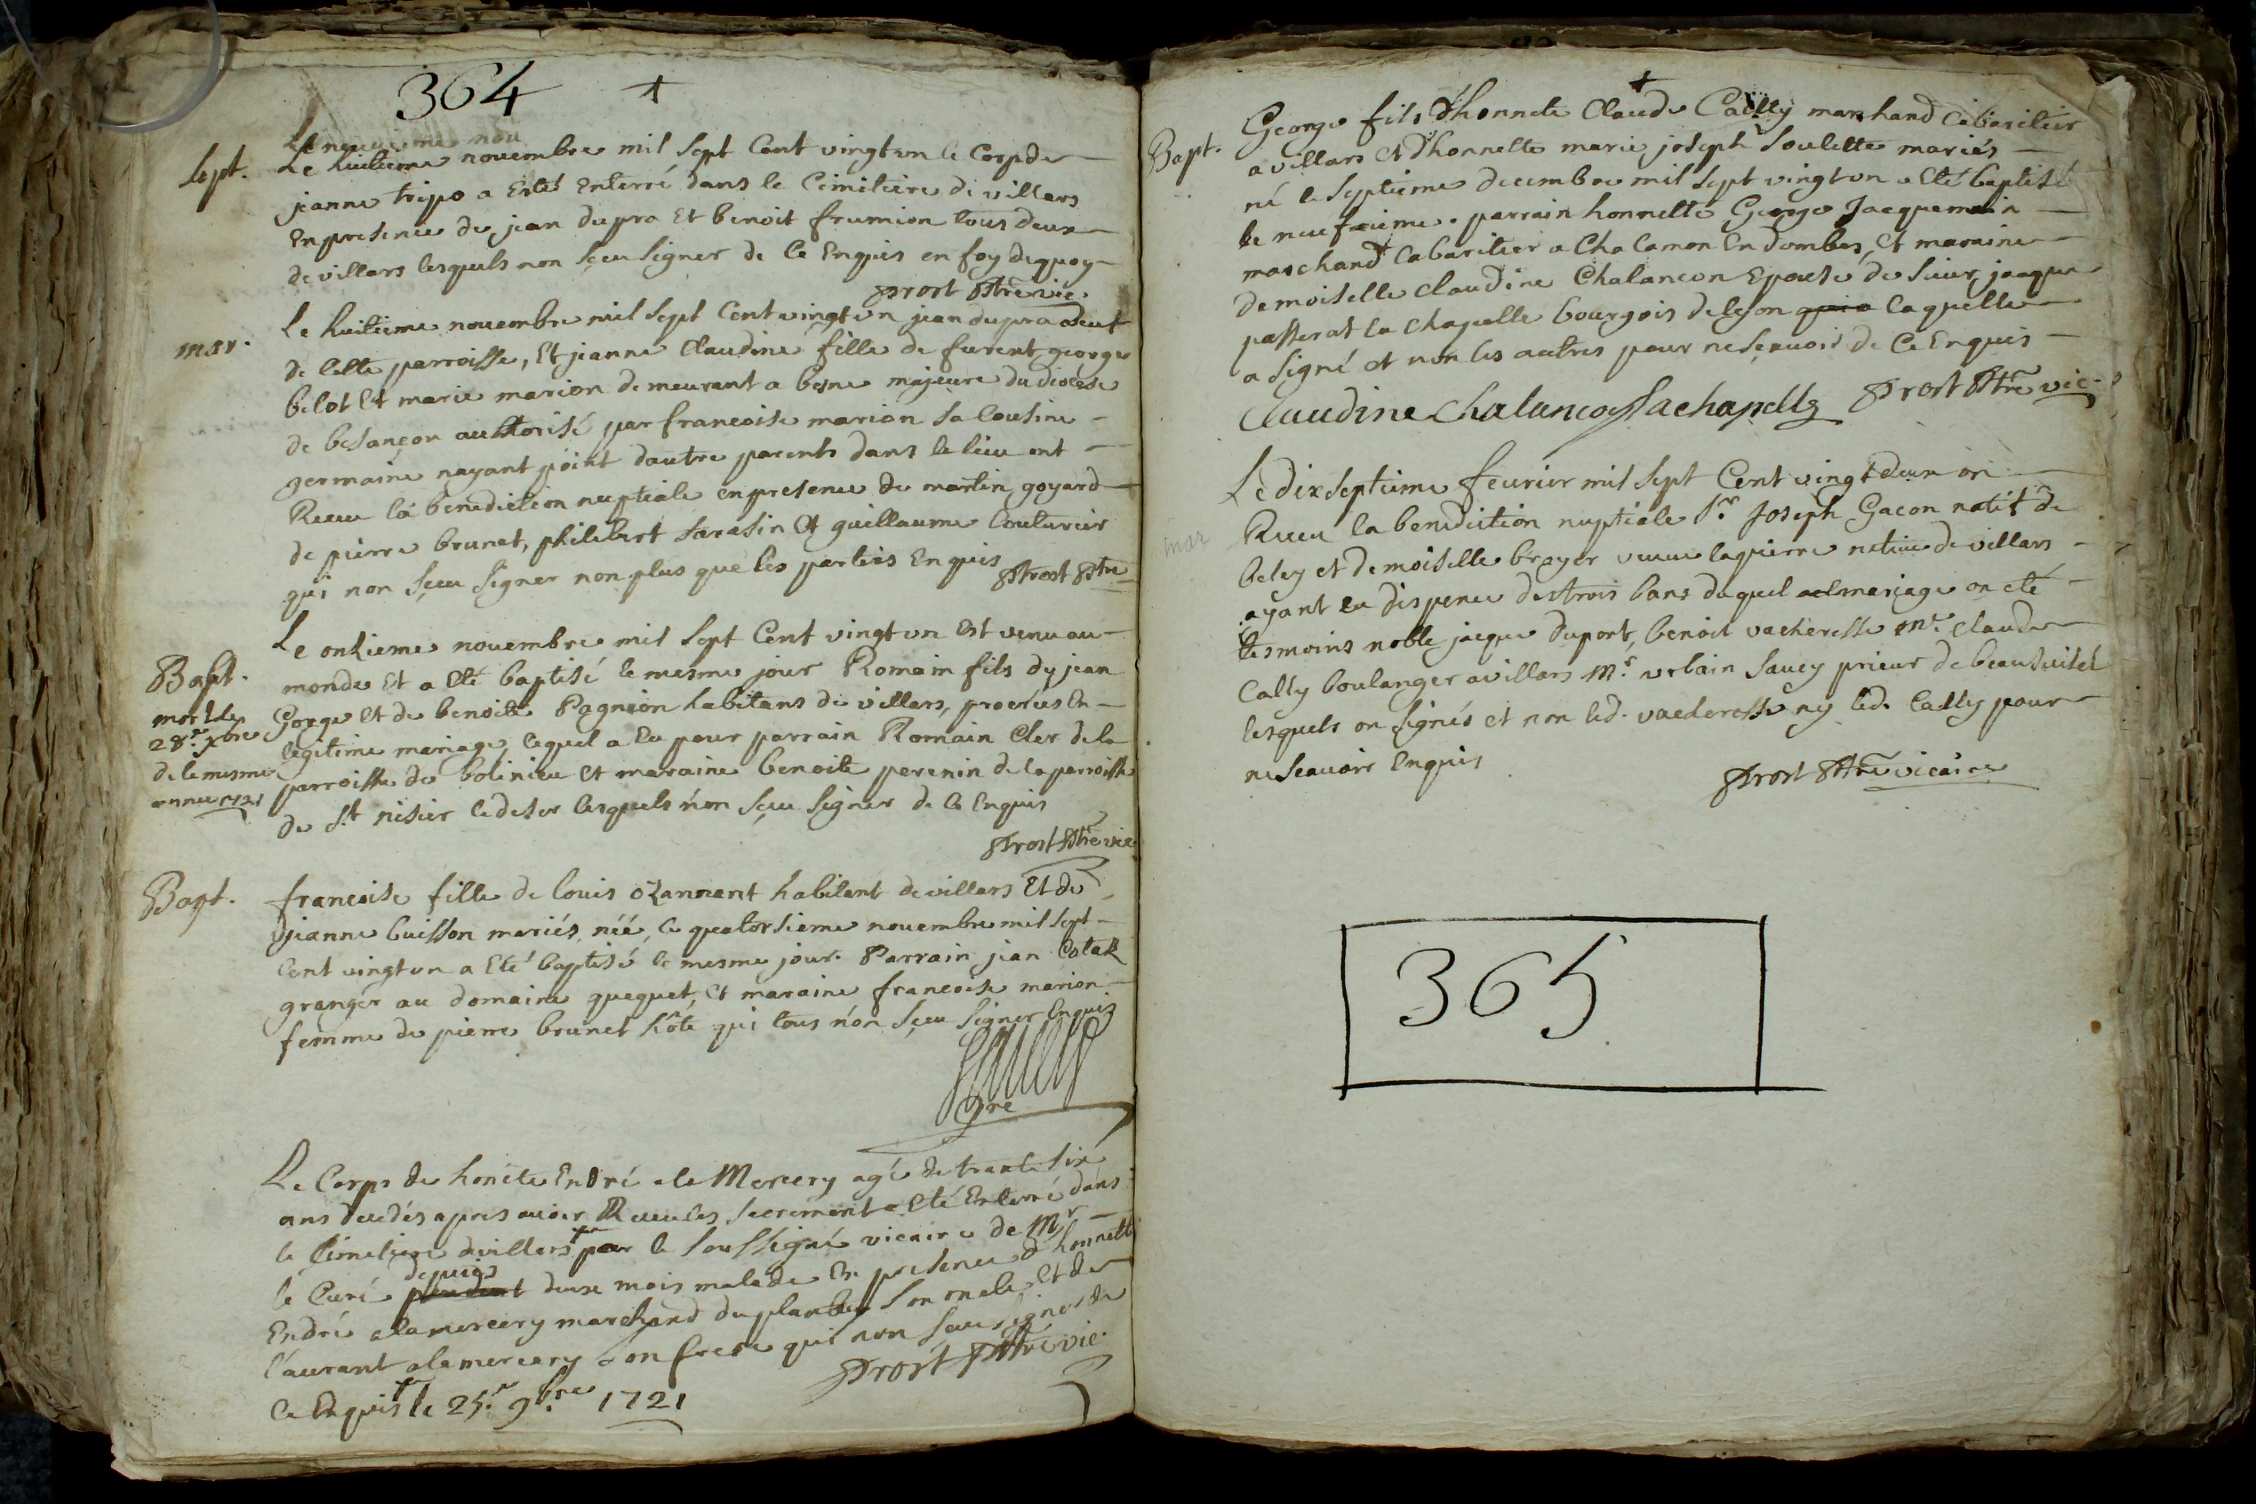 364
Le neuvieme nou
Sept.
Le huitieme novembre mil sept Cent vingt un le Corp de
jeanne tripo a Esté Enterré dans le Cimitiere de villars
En presence de jean dupra Et benoit frumion tous deux
de villars lesquels non sçeu signer de Ce Enquis en foy dequoy
Prost Ptre vic.
mar.
Le huitieme novembre mil sept Cent vingt un jean dupra
de Cette parroisse, Et jeanne Claudine fille de furent george
belot Et marie marion demeurant a besne majeure du diocese
de besançon authorisé par francoise marion sa Cousine
germaine nayant point dautre parents dans le lieu ont
Receu la benediction nuptiale en presence de martin goyard
de pierre brunet, philibert sarasin Et guillaume Couturier
qui non sçeu signer non plus que les parties Enquis Prost Ptre
Le onzieme novembre mil sept Cent vingt un Est venu au
Bapt.
monde Et a Eté baptisé le mesme jour Romain fils dy jean
mort le
28e xbre
de le mesme
année 1721
Gorge Et de benoite Pagneon habitans de villars, procréés En
legitime mariage, lequel a Eu pour parrain Romain Cler de la
parroisse de bolinieu Et maraine benoite perenin de la parroisse
de st nisier le desert lesquels non sçeu signer de Ce Enquis
Prost Ptre vic
Bapt.
francoise fille de louis ozannant habitant de villars Et de
jeanne buisson mariés, néé, le quatorsieme novembre mil sept
Cent vingt un a Eté baptisé le mesme jour. Parrain jean Cotak
granger au domaine queguet, Et maraine francoise marion
femme de pierre brunet hôte qui tous non sçeu signer Enquis
Le Corps de honete Endré ala Mercery agé de trante six
ans decedés apres avoir Receu les sacrement a Eté Enterré dans
le Cimetiere de villars par le soussigné vicaire de Mr
le Curé pendant depuis deux mois malade En presence d'honnette
Endré alamercery marchand du plantay son oncle Et de
l'aurant alamercery son frere qui non sçeu signer de
Ce Enquis le 25e 9bre 1721
Prost Ptre vic.
Bapt.
George fils d'honnete Claude Cally marchand Cabaritier
a villars Et d'honnette marie joseph soulette mariés
né le septieme decembre mil sept vingt un a Eté baptisé
le neufieme. parrain honnette George Jacquemain
marchand Cabaritier a Chalamon En dombes, Et maraine
demoiselle Claudine Chalancon Epouse de sieur jacque
passerat la chapelle bourgois de lyon laquelle
a signé et non les autres pour ne scavoir de Ce Enquis
Claudine Chalancon Lachapelle Prost Ptre vic.
mar
Le dixseptieme fevrier mil sept Cent vingt deux on
Receu la benediction nuptiale Sr Joseph Gacon natif de
beley et demoiselle brayer veuve lapierre native de villars
ayant eu dispence des trois bans duquel mariage on eté
tesmoins noble jacque duport, benoit vacheresse mr claude
Cally boulanger a villars Mr urbain saucy prieur de
lesquels on signés et non led. vacheresse ny led. Cally pour
ne scavoir Enquis
Prost Ptre vicaire
365